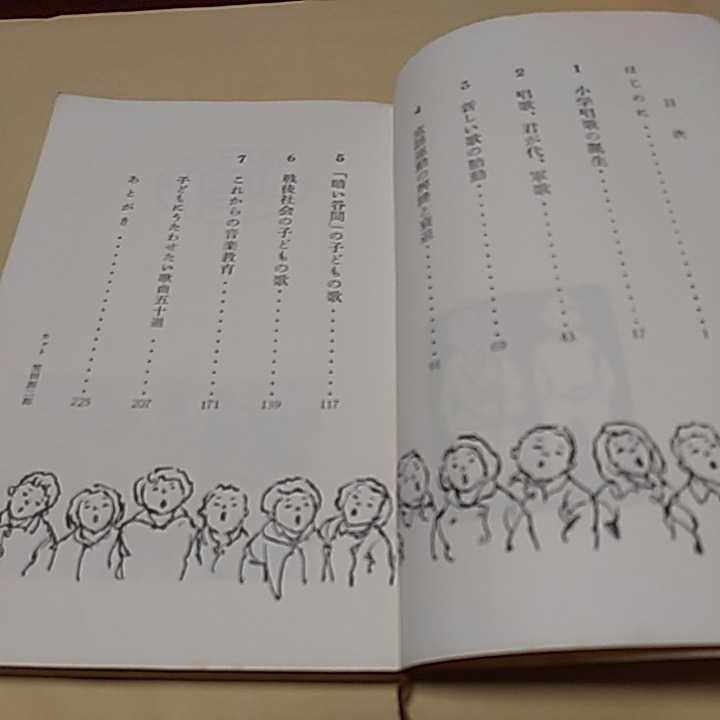 目次
はじめに 1
1 小学唱歌の誕生 17
2 唱歌、君が代、軍歌 43
3 新しい歌の胎動 69
4
5 「暗い谷間」の子どもの歌 117
6 戦後社会の子どもの歌 139
7 これからの音楽教育 171
子どもにうたわせたい歌曲五十選 207
あとがき 225
カット